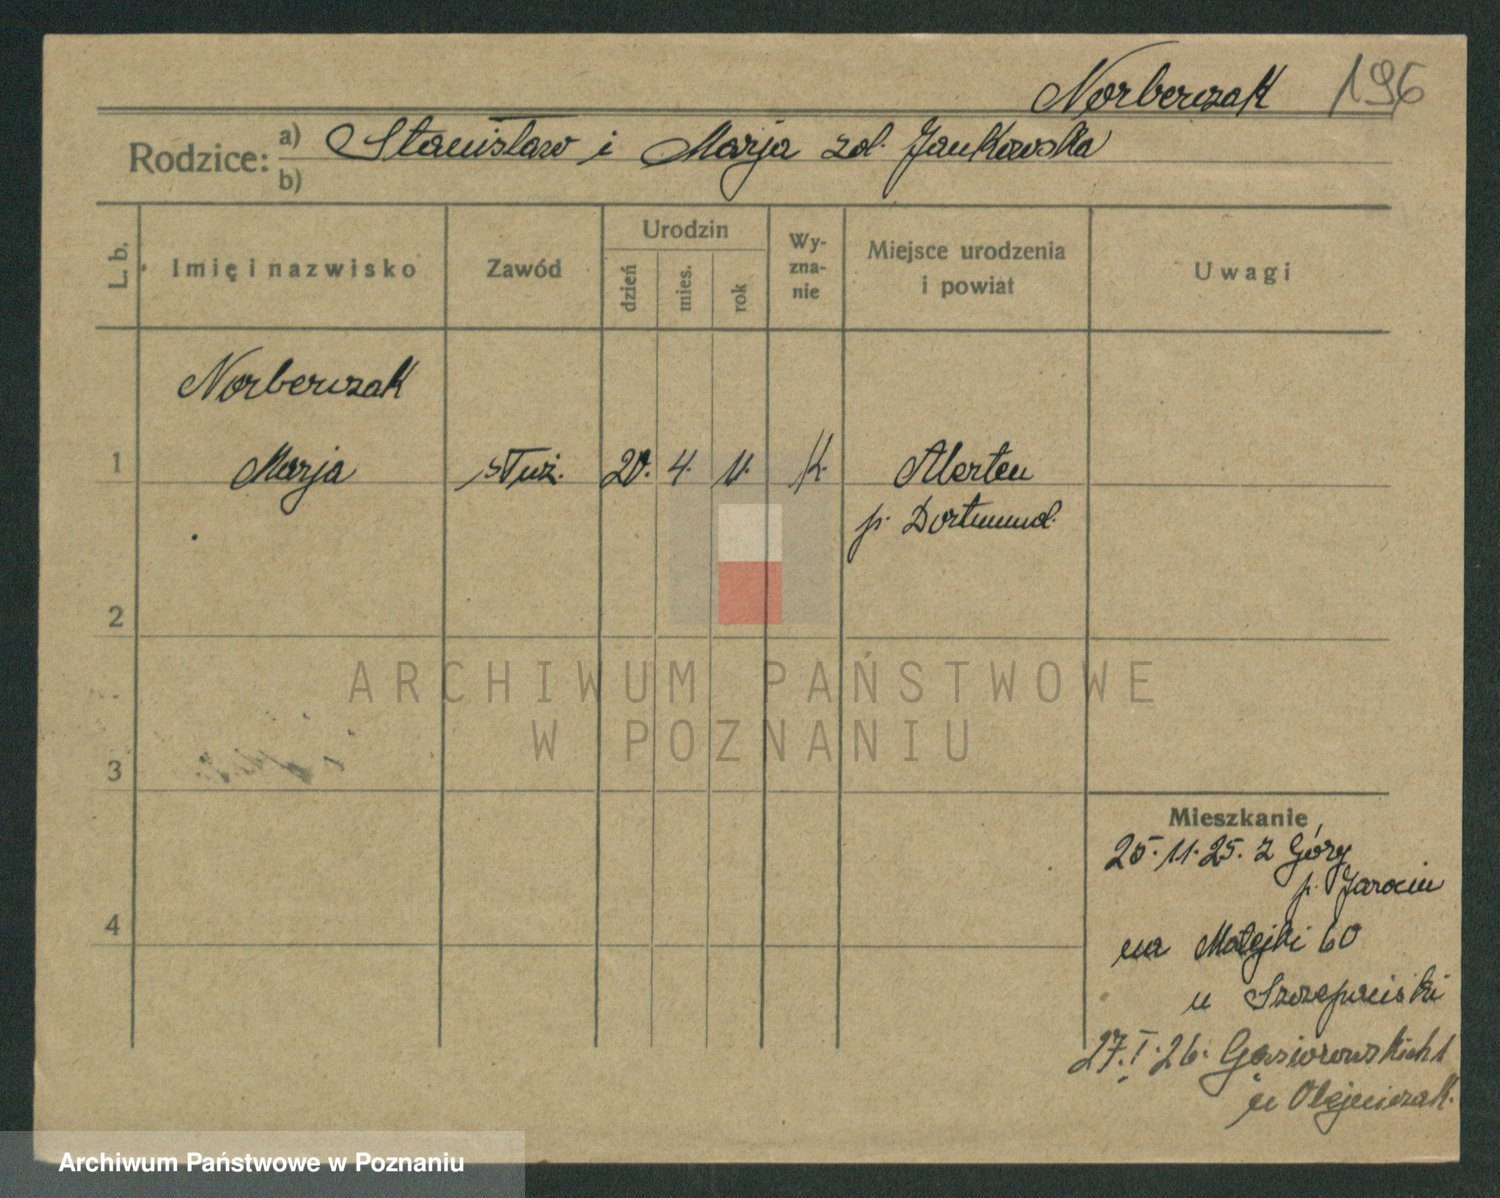 Norberczak 196
Rodzice: a) Stanisław i Marja zd. Jankowska
b)
L. b.
Imię i nazwisko
Zawód
Urodzin
dzień
mies.
rok
Wy-
zna-
nie
Miejsce urodzenia
i powiat
Uwagi
Norberczak
1 Marja służ. 20. 4. 11. K. Merten
p. Dortmund.
2
3
4
ARCHIWUM PAŃSTWOWE
W POZNANIU
Mieszkanie
25. 11. 25. z Góry
p. Jarocin
na Matejki 60
u Szczepański
27. I. 26. Gąsiorowskich 1
u Olejniczak.
Archiwum Państwowe w Poznaniu